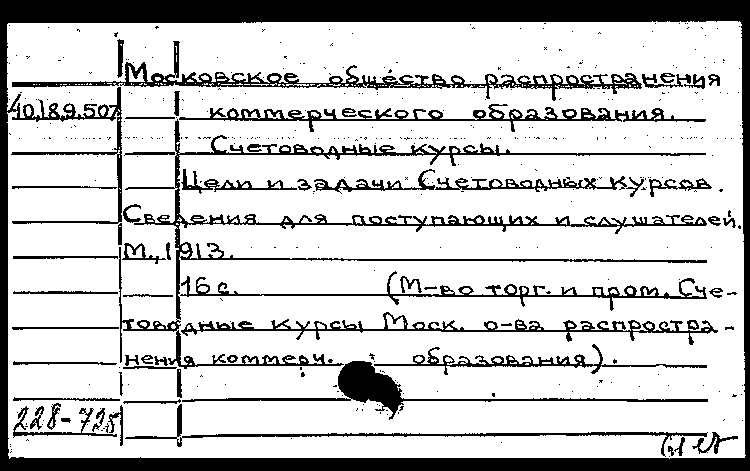 Московское общество распространения
40,189.507 коммерческого образования.
Счетоводные курсы.
Цели и задачи Счетоводных курсов.
Сведения для поступающих и слушателей.
М., 1913.
16 с. (М-во торг. и пром. Сче-
товодные курсы Моск. о-ва распростра-
нения коммерч. образования).
228-725